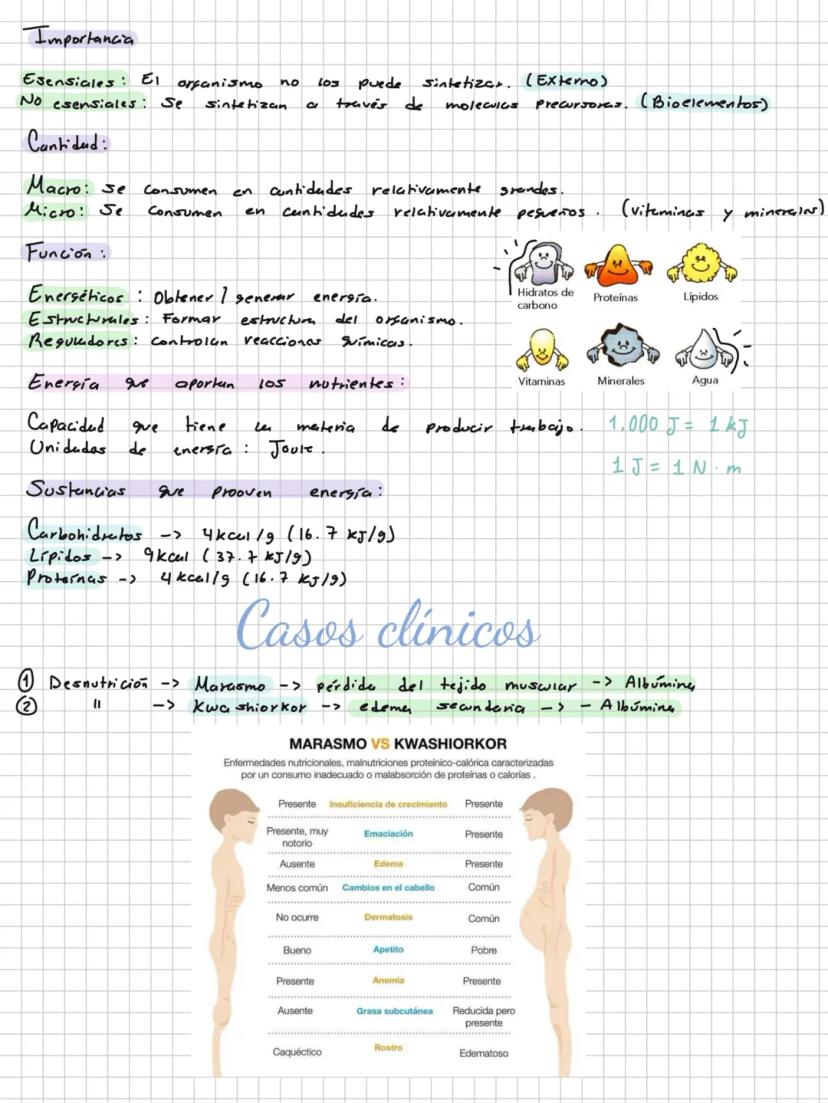 Importancia
Esensiales: El organismo no los puede sintetizar. (Externo)
No esensiales: Se sintetizan a través de moleculas precursoras. (Bioelementos)
Cantidad:
Macro: se consumen en cantidades relativamente grandes.
Micro: Se consumen en cantidades relativamente pequeños. (vitaminas y minerales)
Función:
Energéticos: Obtener / generar energía.
Estructurales: Formar estructura del organismo.
Reguladores: controlan reacciones químicas.
Hidratos de carbono
Proteínas
Lípidos
Vitaminas
Minerales
Agua
Energía que aportan los nutrientes:
Capacidad que tiene la materia de producir trabajo.
Unidades de energía: Joule.
1.000 J = 1 kJ
1 J = 1 N · m
Sustancias que prooven energía:
Carbohidratos -> 4kcal/g (16.7 kJ/g)
Lípidos -> 9kcal (37.7 kJ/g)
Proteínas -> 4 kcal/g (16.7 kJ/g)
Casos clínicos
① Desnutrición -> Marasmo -> pérdida del tejido muscular -> Albúmina
② " -> Kwashiorkor -> edema secundaria -> - Albúmina
MARASMO VS KWASHIORKOR
Enfermedades nutricionales, malnutriciones proteínico-calórica caracterizadas
por un consumo inadecuado o malabsorción de proteínas o calorías .
Presente Insuficiencia de crecimiento Presente
Presente, muy notorio Emaciación Presente
Ausente Edema Presente
Menos común Cambios en el cabello Común
No ocurre Dermatosis Común
Bueno Apetito Pobre
Presente Anemia Presente
Ausente Grasa subcutánea Reducida pero presente
Caquéctico Rostro Edematoso